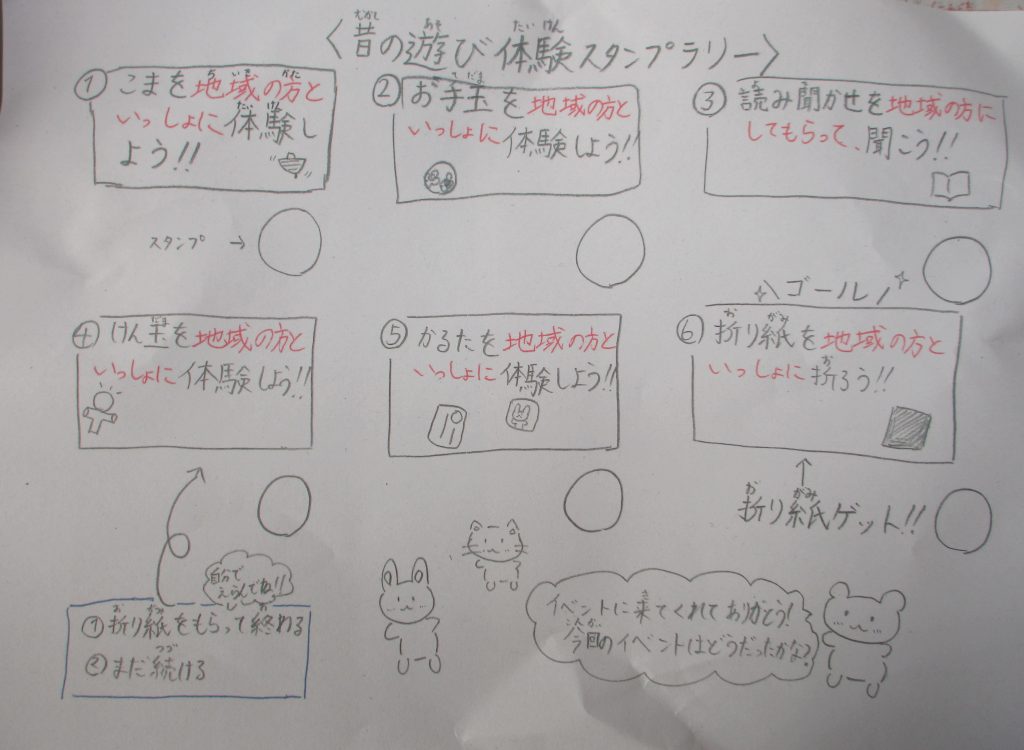 〈昔の遊び体験スタンプラリー〉
むかし あそ たいけん
① こまを地域の方と
ちいき かた
いっしょに体験し
たいけん
よう!!
② お手玉を地域の方と
てだま
いっしょに体験しよう!!
③ 読み聞かせを地域の方に
してもらって、聞こう!!
スタンプ →
ゴール
④ けん玉を地域の方と
だま
いっしょに体験しよう!!
⑤ かるたを地域の方と
いっしょに体験しよう!!
⑥ 折り紙を地域の方と
お がみ
いっしょに折ろう!!
お
折り紙ゲット!!
お がみ
自分で
えらんでね!!
① 折り紙をもらって終わる
お がみ お
② まだ続ける
つづ
イベントに来てくれてありがとう!
き
今回のイベントはどうだったかな?
こんかい